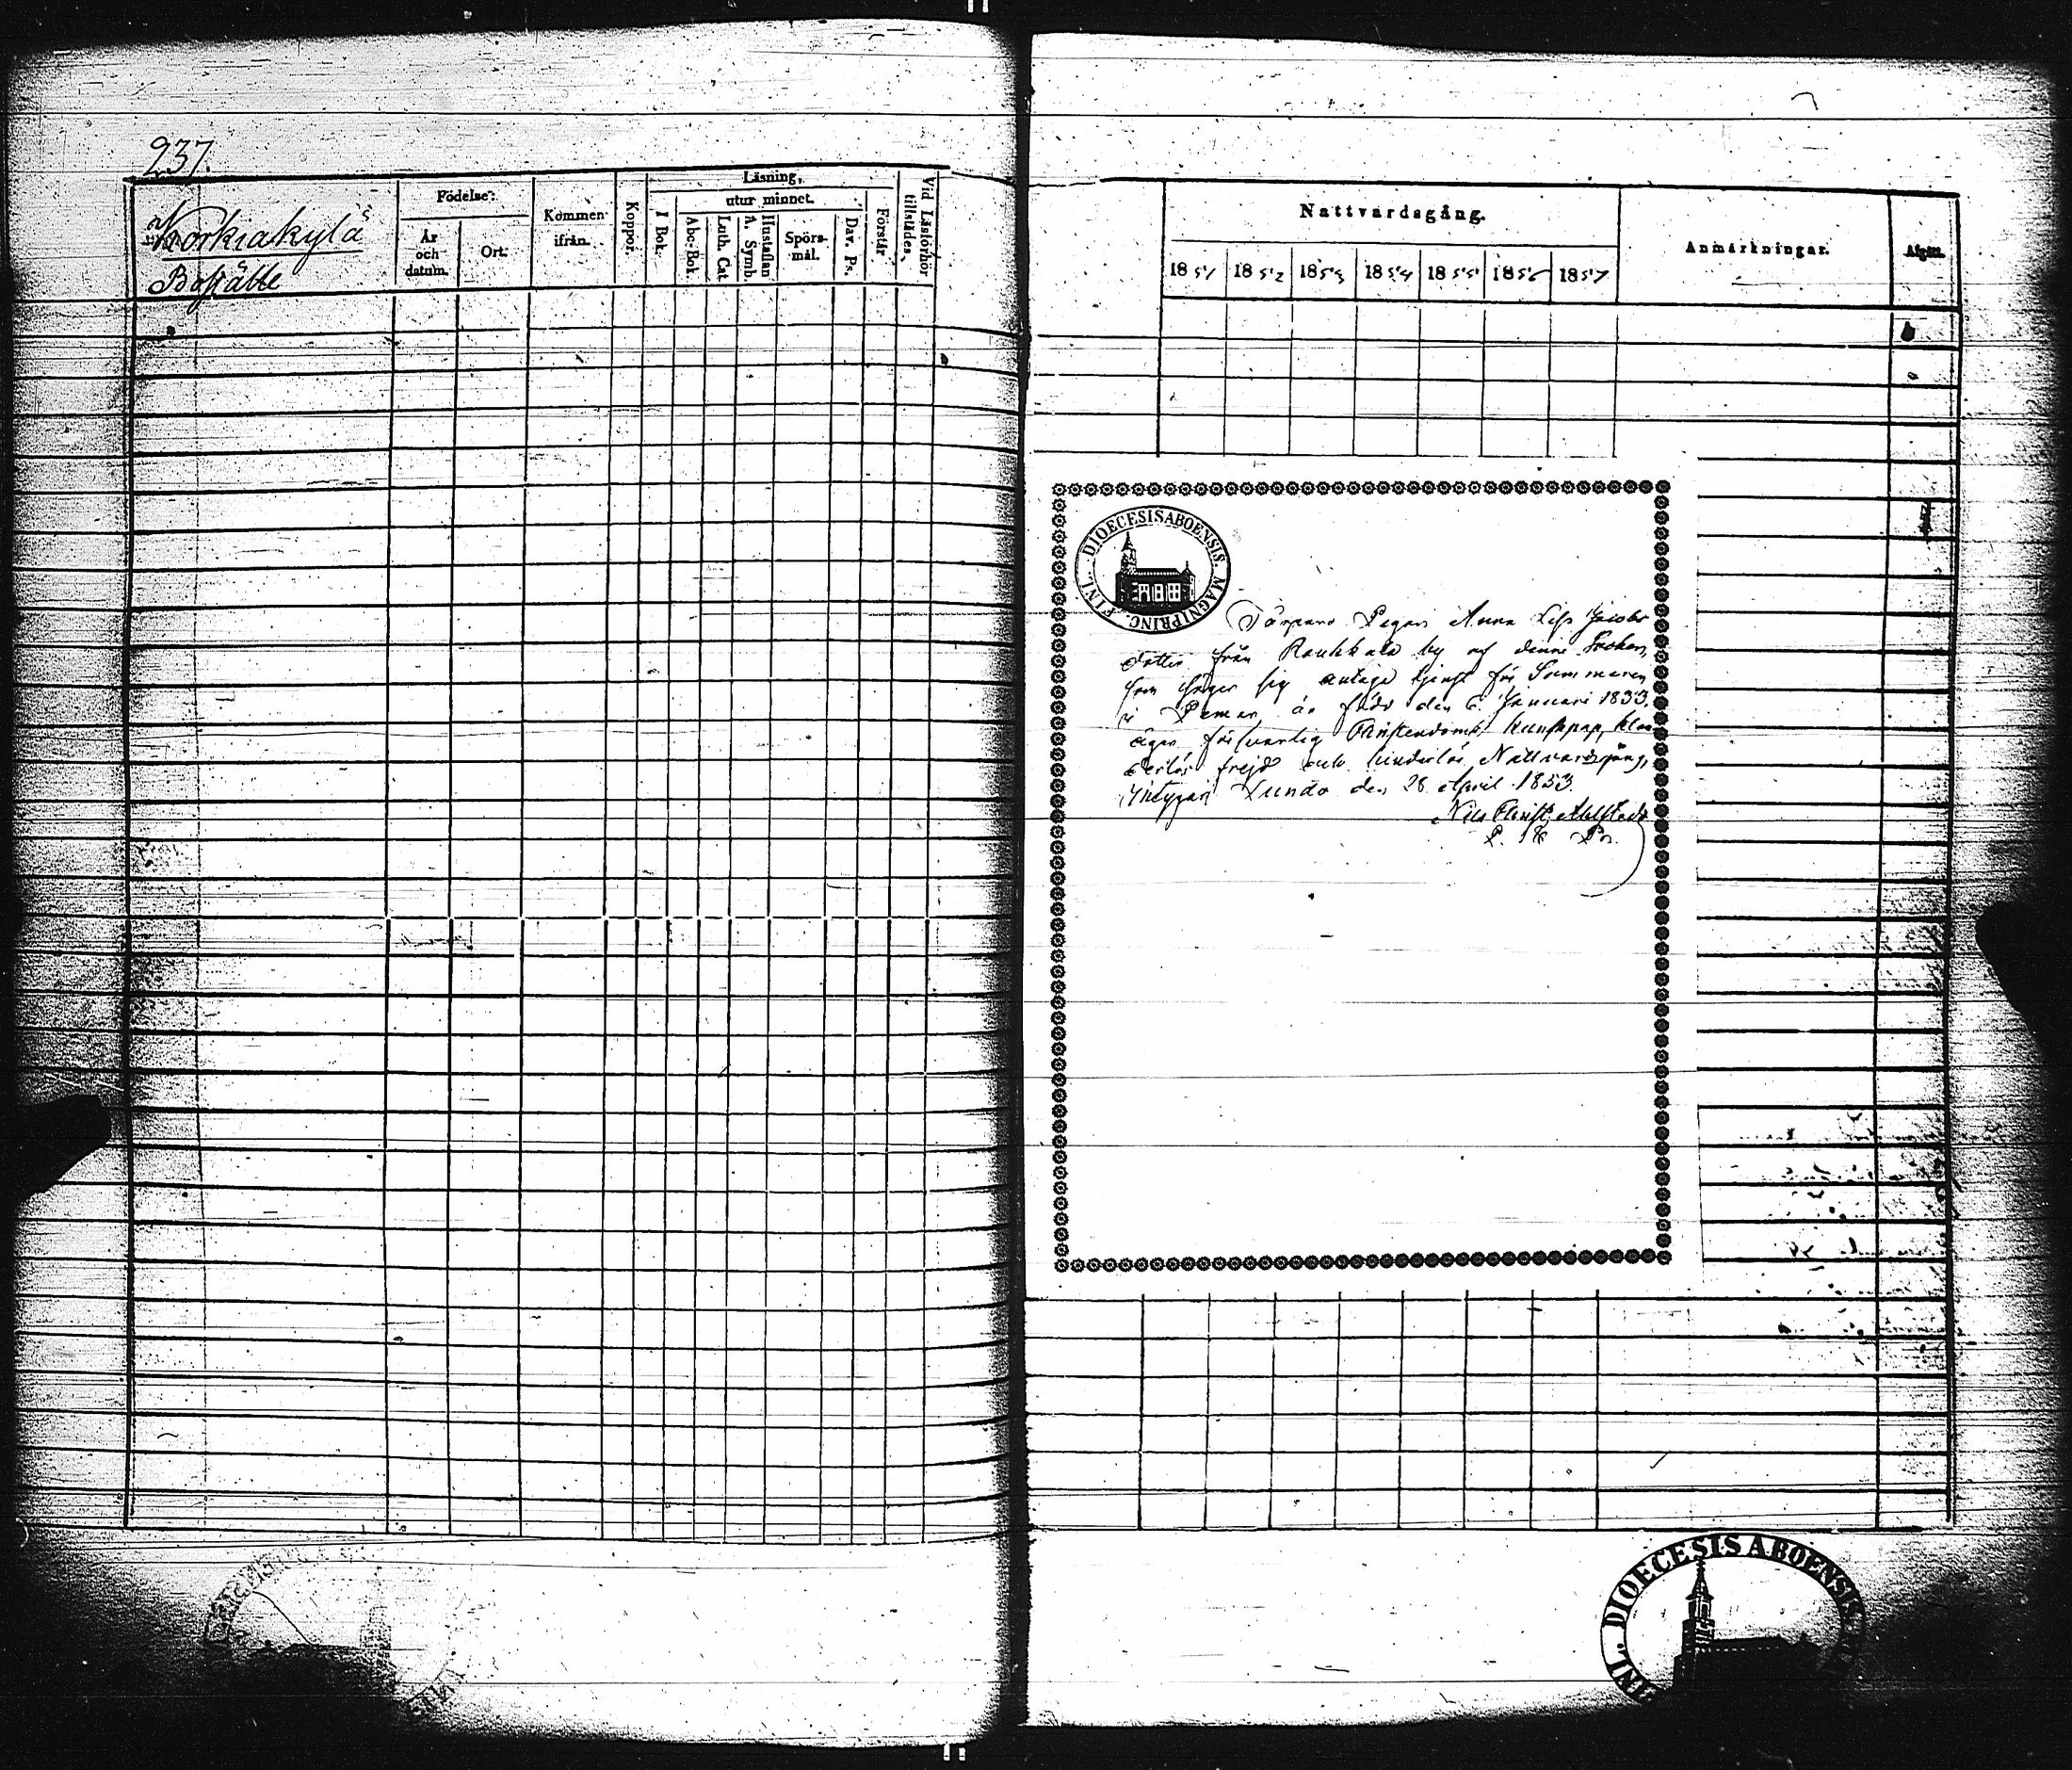 237.
Korkiakylä
Boställe
Födelse:
År och datum.
Ort.
Kommen ifrån.
Koppor.
Läsning,
utur minnet.
I Bok.
Abc-Bok.
Luth. Cat
Hustaflan A. Symb.
Spörsmål.
Dav. Ps.
Förstår
Vid Läsförhör tillstädes.
Nattvardsgång.
1851 1852 1853 1854 1855 1856 1857
Anmärkningar.
Afgått.
FINL. DIOECESIS ABOENSIS. MAGNI PRINC.
Pigan Anna Lisa Jacobs
dotter från Raukkala by af denne Socken,
som säger sig antaga tjenst för Sommaren
i Pemar är född den 6 Januari 1833,
äger försvarlig Christendoms kunskap, klan
derlös frejd och hinderlös Nattvardsgång,
intygar Lundo den 28 April 1853.
Nils Christ. Ahlstedt
FINL. DIOECESIS ABOENSIS